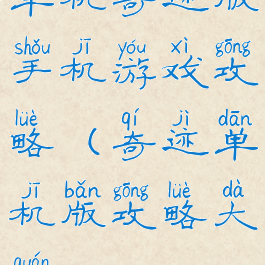 单机奇迹版
shǒu jī yóu xì gōng
手机游戏攻
lüè qí jì dān
略（奇迹单
jī bǎn gōng lüè dà
机版攻略大
quán